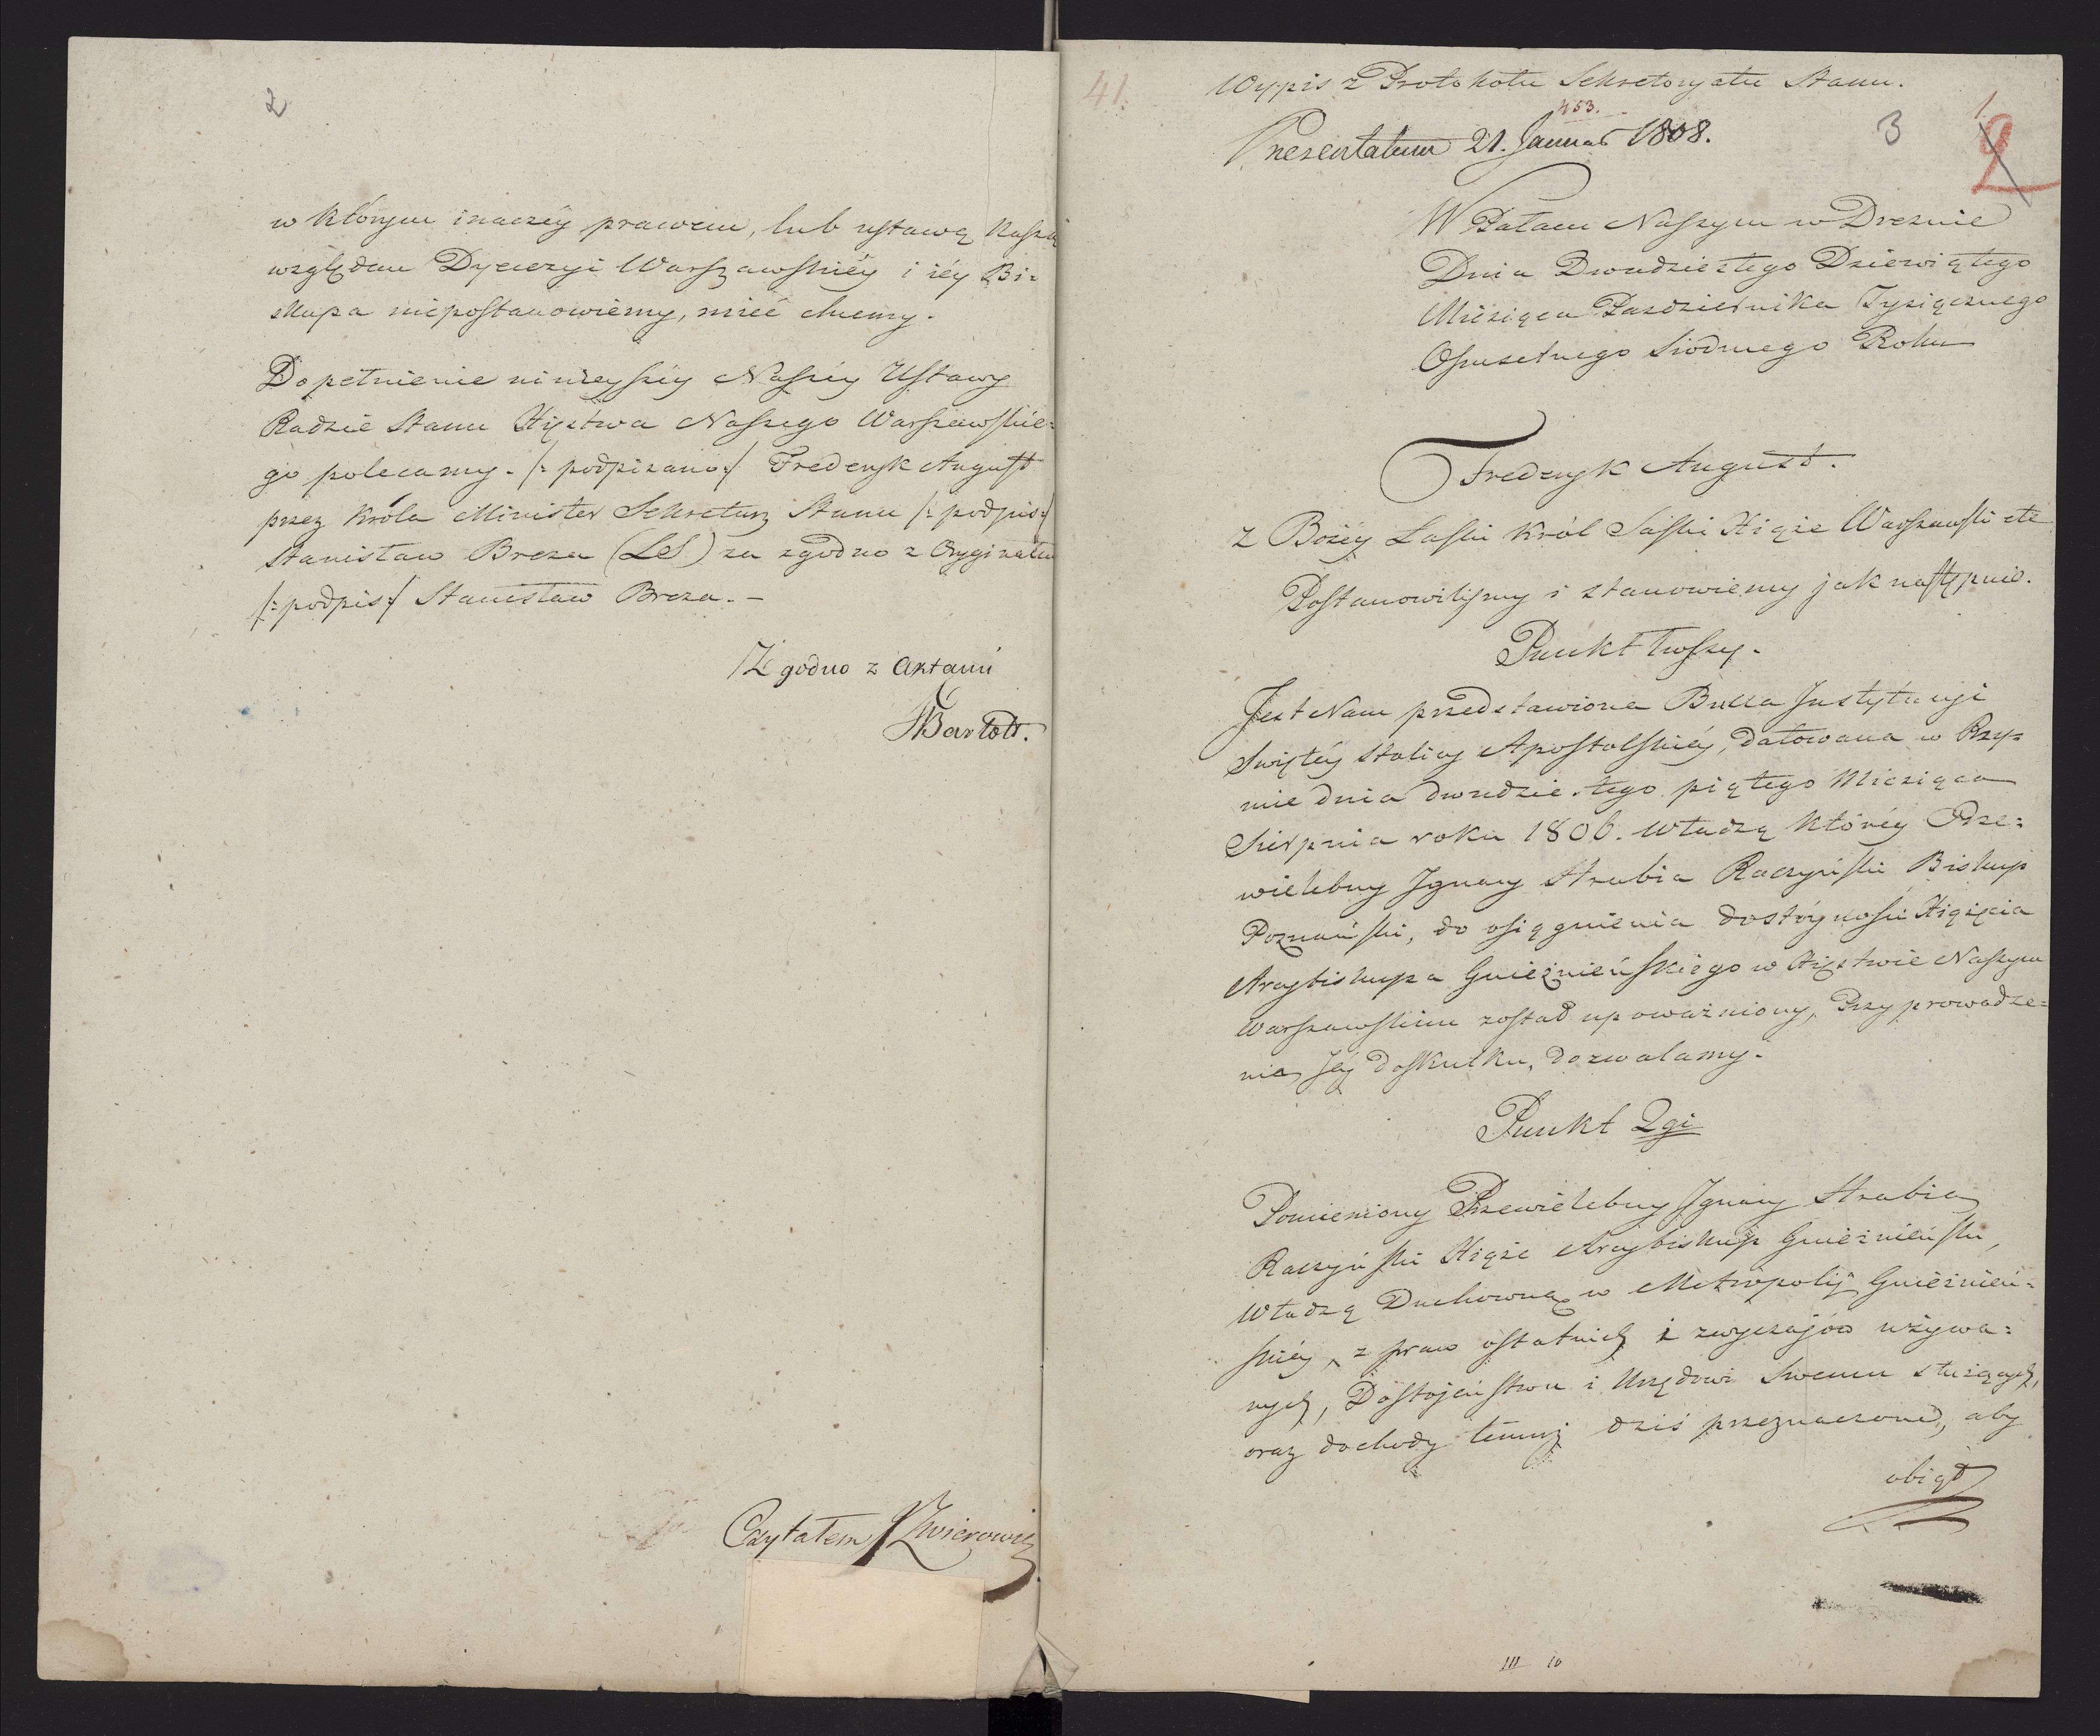 2
w którym inaczéy prawem, lub ustawą Naszą
względem Dyecezyi Warszawskiéy i iéy Bi:
skupa niepostanowiemy, mieć chcemy.
Dopełnienie ninieyszéy Naszéy Ustawy
Radzie Stanu Xięstwa Naszego Warszawskie:
go polecamy. /: podpisano :/ Frederyk August
przez Króla Minister Sekretarz Stanu /: podpis :/
Stanisław Breza (LS) za zgodno z Oryginałem
/: podpis :/ Stanisław Breza. –
Zgodno z Aktami
Czytałem
41.
Wypis z Protokołu Sekretaryatu Stanu.
453.
Presentatum 21. Januar 1808.
3
2
W Pałacu Naszym w Dreznie
Dnia Dwudziestego Dziewiątego
Miesiąca Pazdziernika Tysiącznego
Osmsetnego Siódmego Roku
Frederyk August.
z Bożéy Łaski Król Saski Xiąże Warszawski etc
Postanowiliśmy i stanowiemy jak następnie.
Punkt 1wszy.
Jest Nam przedstawiona Bulla Instytucyi
Swiętéy Stolicy Apostolskiéy, datowana w Rzy:
mie dnia dwudziestego piątego Miesiąca
Sierpnia roku 1806. władzą któréy Prze:
wielebny Ignacy Hrabia Raczyński Biskup
Poznański, do osiągnienia dostoyności Xiążęcia
Arcybiskupa Gnieźnieńskiego w Xięstwie Naszym
Warszawskim został upoważniony, Przyprowadze:
nia Jéy do skutku, dozwalamy.
Punkt 2gi
Pomieniony Przewielebny Ignacy Hrabia
Raczyński Xiąże Arcybiskup Gnieźnieński,
Władzą Duchowną w Metropolij Gnieźnień:
skiéy, z praw ostatnich i zwyczajów używa:
nych, Dostojeństwu i Urzędowi Swemu służących,
oraz dochody temuż dziś przeznaczone, aby
objął
III 10